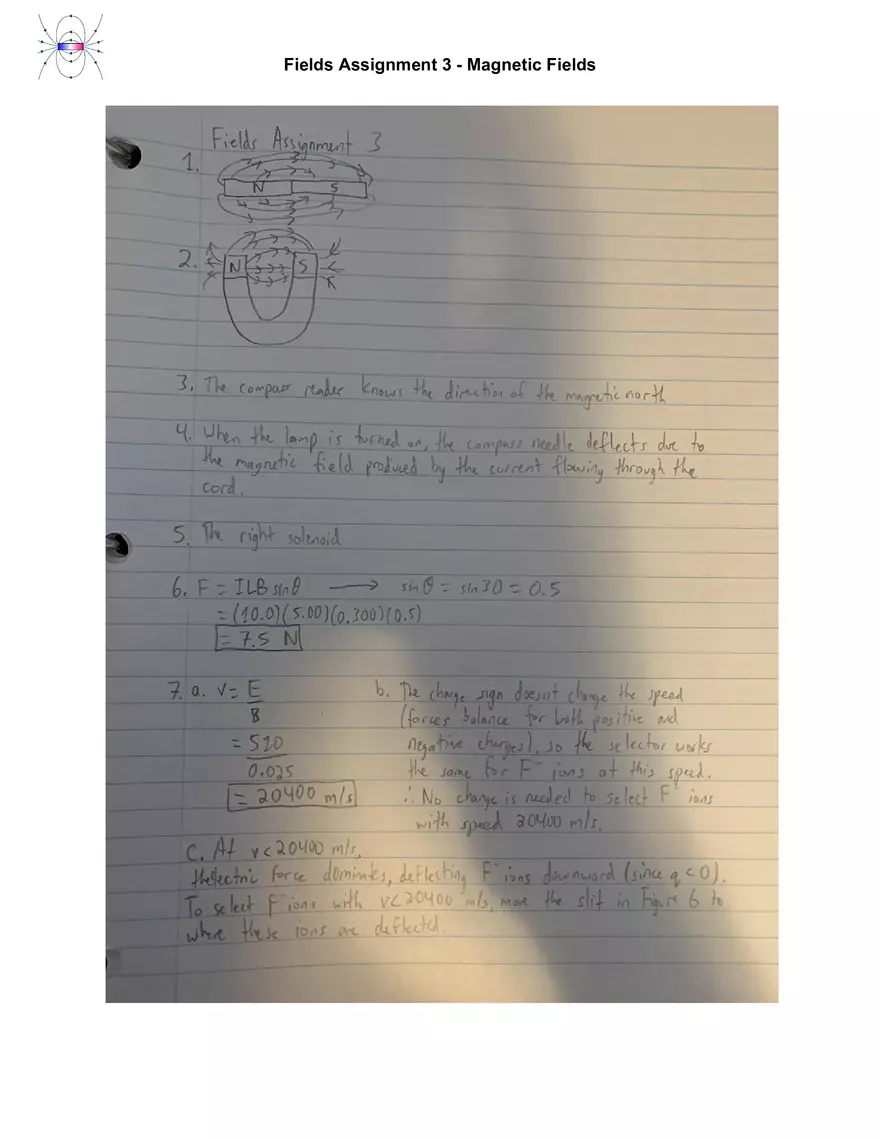 Fields Assignment 3 - Magnetic Fields
Fields Assignment 3
1.
N S
2.
N S
3. The compass reader knows the direction of the magnetic north
4. When the lamp is turned on, the compass needle deflects due to
the magnetic field produced by the current flowing through the
cord.
5. The right solenoid
6. F = ILB sinθ → sinθ = sin30 = 0.5
= (10.0)(5.00)(0.300)(0.5)
= 7.5 N
7. a. v = E
B
= 510
0.025
= 20400 m/s
b. The charge sign doesn't change the speed
(forces balance for both positive and
negative charges), so the selector works
the same for F⁻ ions at this speed.
∴ No change is needed to select F⁻ ions
with speed 20400 m/s.
C. At v<20400 m/s,
the electric force dominates, deflecting F⁻ ions downward (since q<0).
To select F⁻ ions with v<20400 m/s, move the slit in Figure 6 to
where these ions are deflected.